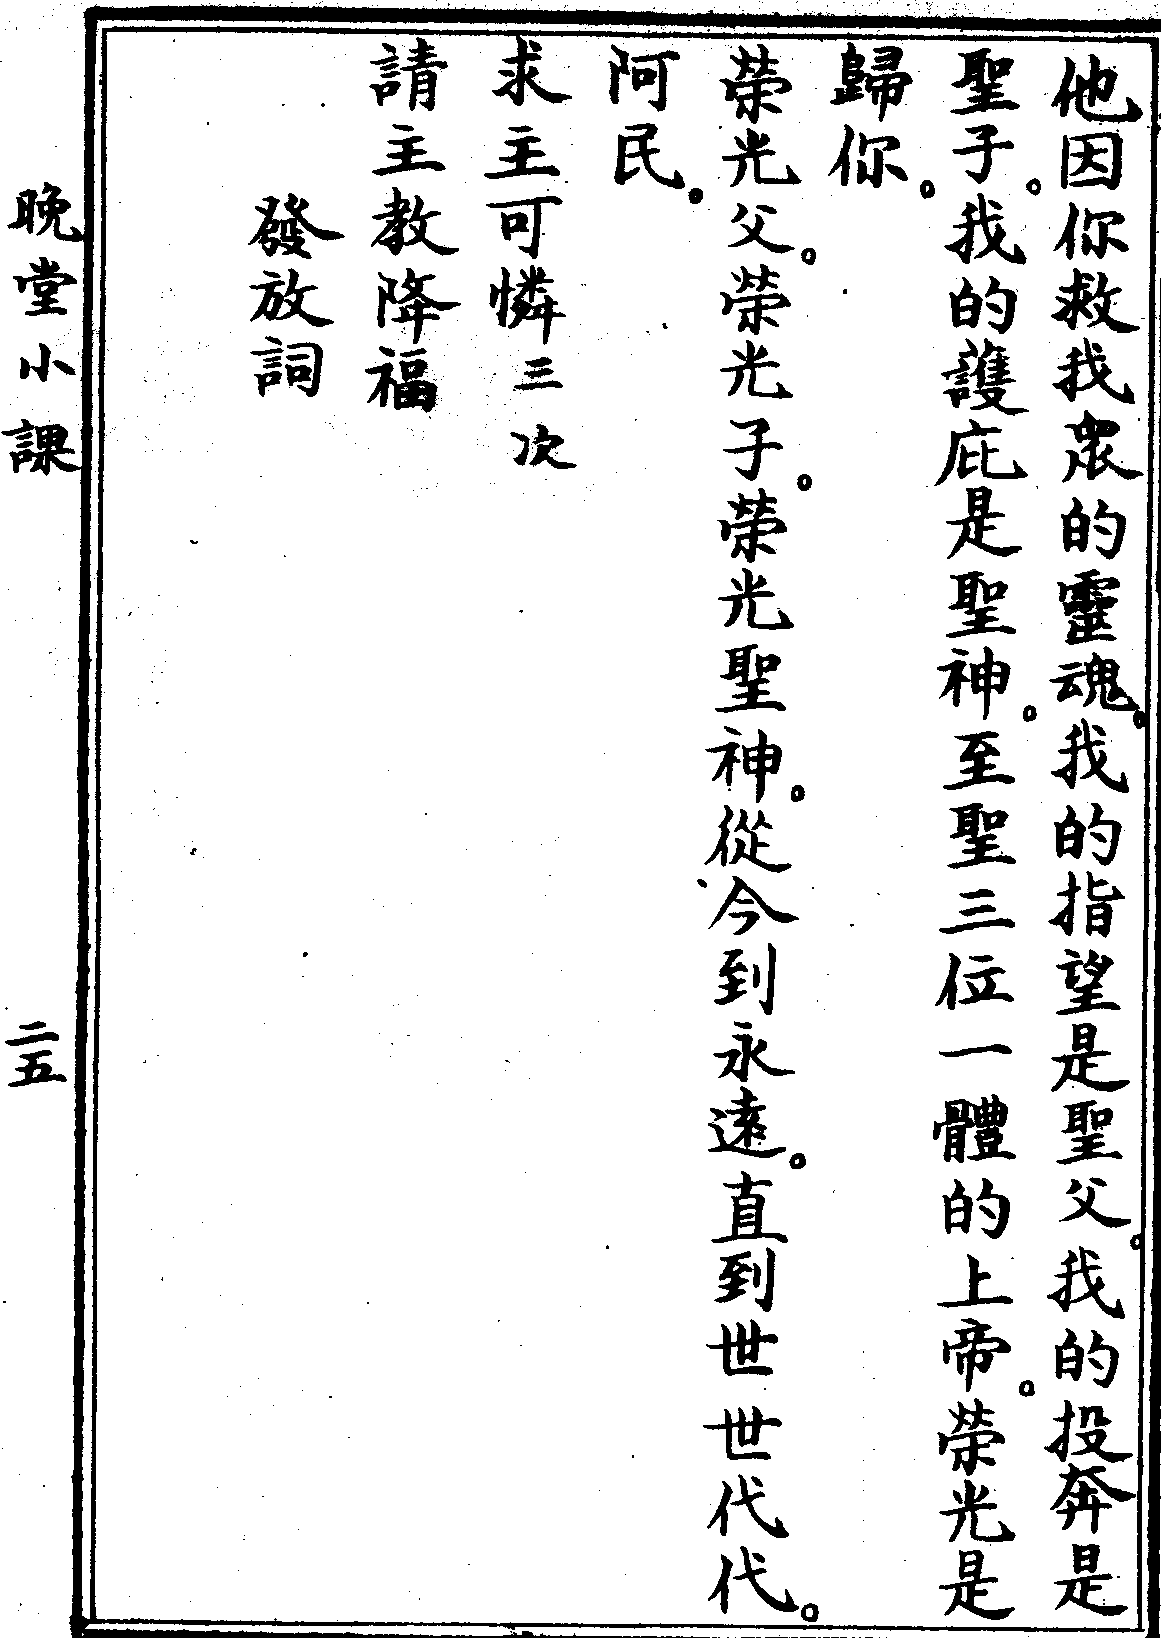 他因你救我衆的靈魂。我的指望是聖父。我的投奔是
聖子。我的護庇是聖神。至聖三位一體的上帝。榮光是
歸你。
榮光父。榮光子。榮光聖神。從今到永遠。直到世世代代。
阿民。
求主可憐三次
請主教降福
發放詞
晚堂小課 二五